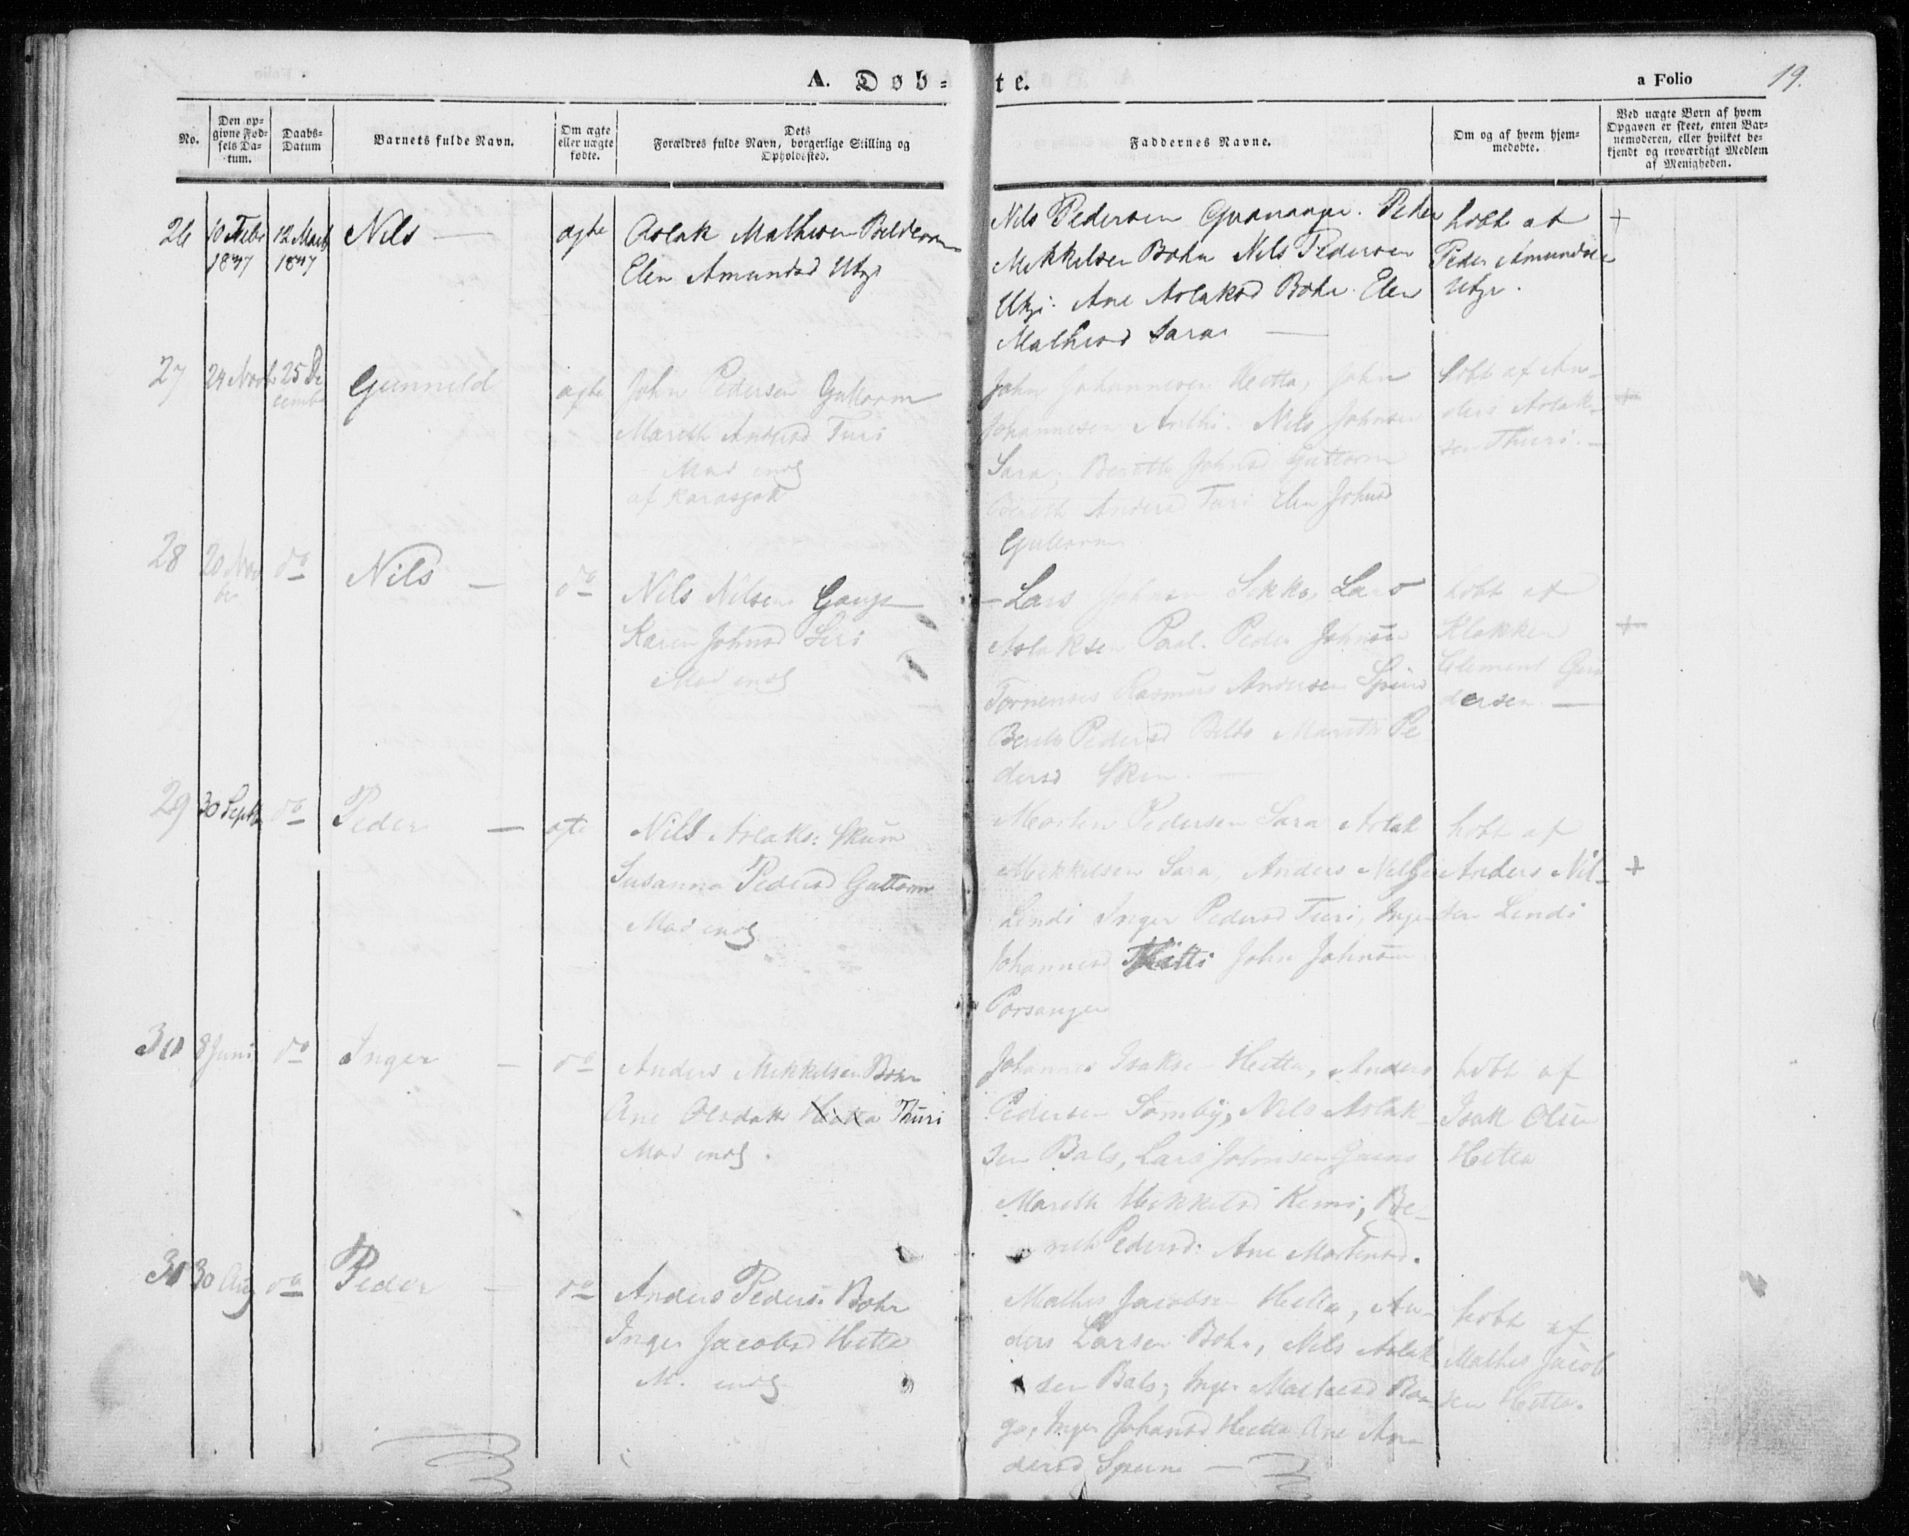 A. Døb-te.
a Folio 19.
No.
Den op-
givne Fød-
sels Da-
tum.
Daabs-
Datum
Barnets fulde Navn.
Om ægte
eller uægte
fødte.
Dets
Forældres fulde Navn, borgerlige Stilling og
Opholdssted.
Faddernes Navne.
Om og af hvem hjem-
medøbte.
Ved uægte Børn af hvem
Opgaven er skeet, enten Bar-
nemoderen, eller hvilket be-
kjendt og troværdigt Medlem
af Menigheden.
26
10 Febr
1847
12 Marts
1847
Nils —
ægte
Aslak Mathisen
Elen Amundsd Utzi
Nils Pedersen Peder
Mikkelsen Bohr Nils Pedersen
Utzi. Ane Aslaksd Bohr. Elen
Mathisd Sara —
hobt af
Peder Amundsen
Utzi.
+
27
24 Novb
25 De
cembr
Gunnild
ægte
John Pedersen Guttorm
Mareth Andersd Turi
Mad
af Karasjok
John Johannesen Hetta, John
Johannesen Nils Johnsen
Sara, Bereth Johnsd Guttorm
Bereth Andersd Turi Elen Johnsd
Guttorm
hobt af An-
ders Aslak-
sen Thuri. —
+
28
20 Nov
br
do
Nils —
do
Nils Nilsen
Karen Johnsd Siri
Mad
— Lars Johnsen Lars
Aslaksen Paal. Peder Johnsen
Tornensis Rasmus Andersen
Pedersd Mareth Pe
dersd
hobt af
Klokker
Clement Gun
dersen —
+
29
30 Septbr
do
Peder —
ægte
Nils Aslaks: Skum
Susanna Pedersd Guttorm
Mad
Morten Pedersen Sara Aslak
Mikkelsen Sara, Anders Nilsen
Lindi Inger Pedersd Turi, Inger
Johannesd John Johnsen
Porsanger
hobt af
Anders Nil-
sen Lindi
+
30
8 Juni
do
Inger —
do
Anders Mikkelsen Bohr
Ane Olsdatt Hetta Thuri
Mad
Johannes Isaksen Hetta, Anders
Pedersen Somby, Nils Aslak-
sen Bals, Lars Johnsen
Mareth Mikkelsd Kemi, Be-
reth Pedersd: Ane Mortensd.
hobt af
Isak Olsen
Hetta
31
30 Aug
do
Peder —
do
Anders Peders: Bohr
Inger Jacobsd Hetta
M.
Mathis Jacobsen Hetta, An-
ders Larsen Bohr, Nils Aslak
sen Bals, Inger
Inger Johansd Hetta Ane An-
dersd —
hobt af
Mathis Jacob
sen Hetta.